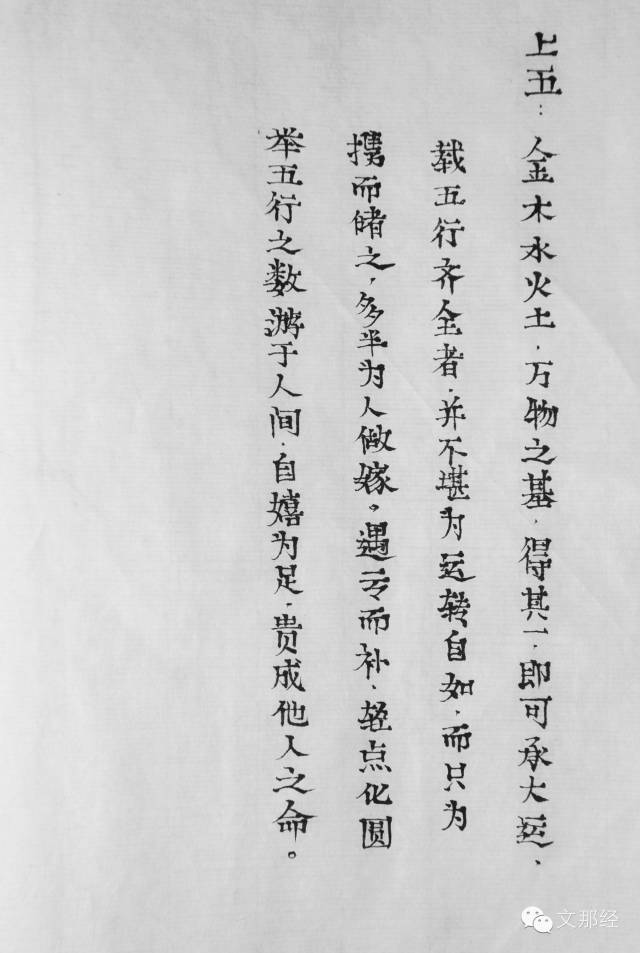 上五：金木水火土，万物之基，得其一，即可承大运、
载五行齐全者，并不堪为运转自如，而只为
携而储之，多半为人做嫁。遇亏而补、轻点化圆
举五行之数游于人间，自嬉为足，贵成他人之命。
文那经